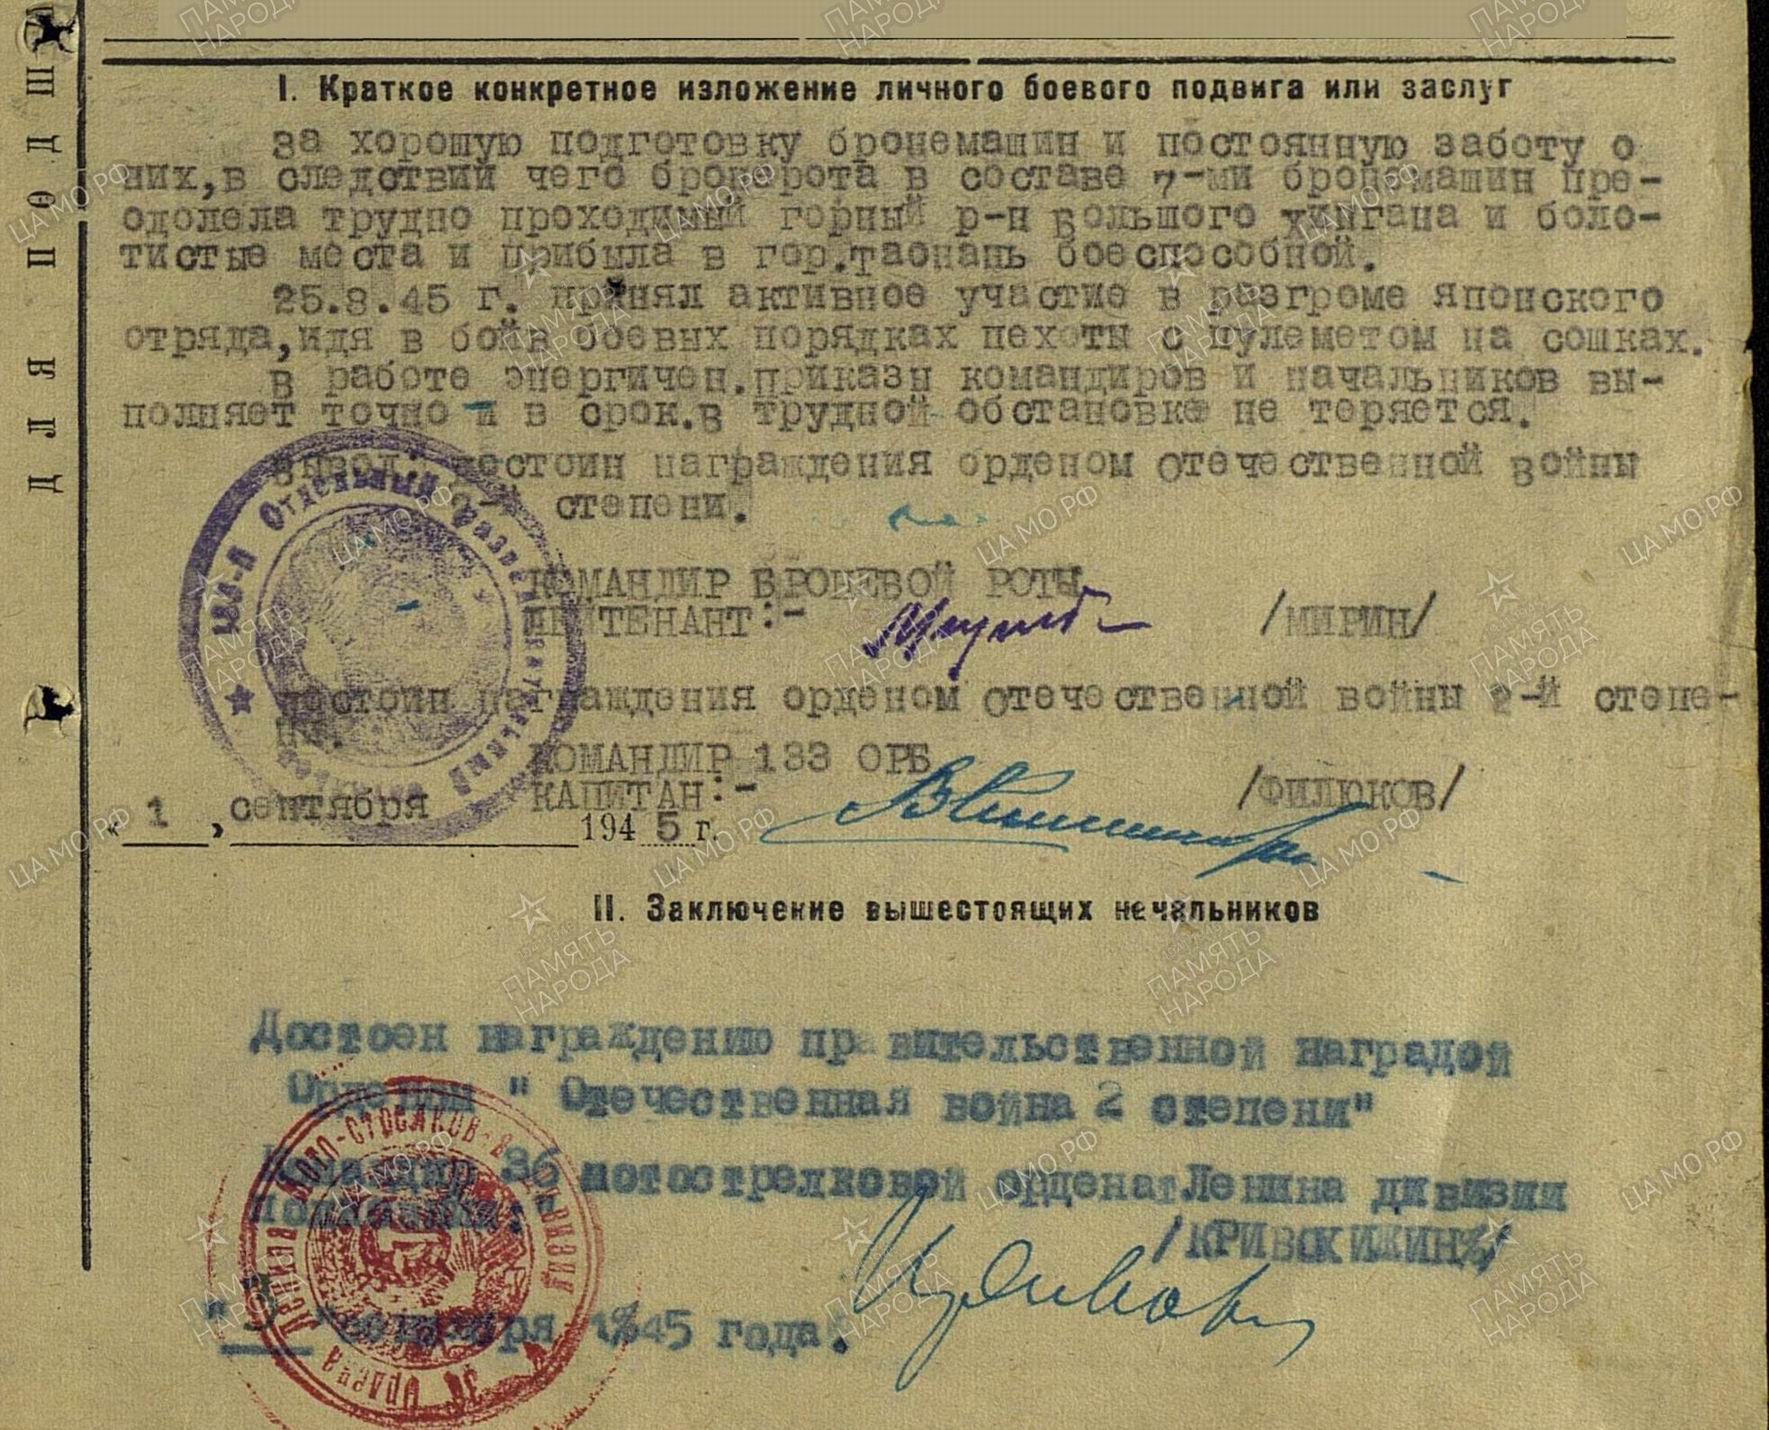 I. Краткое конкретное изложение личного боевого подвига или заслуг
за хорошую подготовку бронемашин и постоянную заботу о
них,в следствии чего бронерота в составе 7-ми бронемашин пре-
одолела трудно проходимый горный р-н Большого Хингана и боло-
тистые места и прибыла в гор.Таонань боеспособной.
25.8.45 г. принял активное участие в разгроме японского
отряда,идя в бойв боевых порядках пехоты с пулеметом на сошках.
В работе энергичен.приказы командиров и начальников вы-
полняет точно и в срок.в трудной обстановке не теряется.
Вывод: достоин награждения орденом Отечественной Войны
2-й степени.
КОМАНДИР БРОНЕВОЙ РОТЫ
ЛЕЙТЕНАНТ:- /МИРИН/
достоин награждения орденом Отечественной войны 2-й степе-
ни.
КОМАНДИР 133 ОРБ
КАПИТАН:- /ФИЛЮКОВ/
« 1 , сентября 1945 г.
II. Заключение вышестоящих начальников
Достоен награждению правительственной наградой
Орденом " Отечественная война 2 степени"
Командир 36 мотострелковой ордена Ленина дивизии
/КРИВСКИЖИН
" 3 " 1945 года.
для подшив
ПАМЯТЬ НАРОДА
ЦАМО.РФ